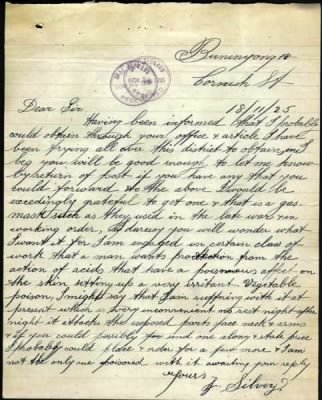 Buninyong
Cornish St
18/11/25
Dear Sir
Having been informed that I probable
could obtain through your office & article I have
been trying all over this district to obtain, I
beg you will be good enough to let me know
by return of Post if you have any that you
could forward to the above I would be
exceedingly grateful to get one & that is a gas-
mask such as they used in the late war in
working order, & I daresay you will wonder what
I want it for I am engaged in certain class of
work that a man wants protection from the
action of acids that have a poisonous affect on
the skin setting up a very irritant Vegetable
poison, I might say that I am suffering with it at
present which is very inconvenient no rest night after
night it attacks the exposed parts face neck & arms
& if you could possibly for send me along & state price
I probably could place & order for a few more & I am
not the only one poisoned with it awaiting your reply
yours
J. Silvey